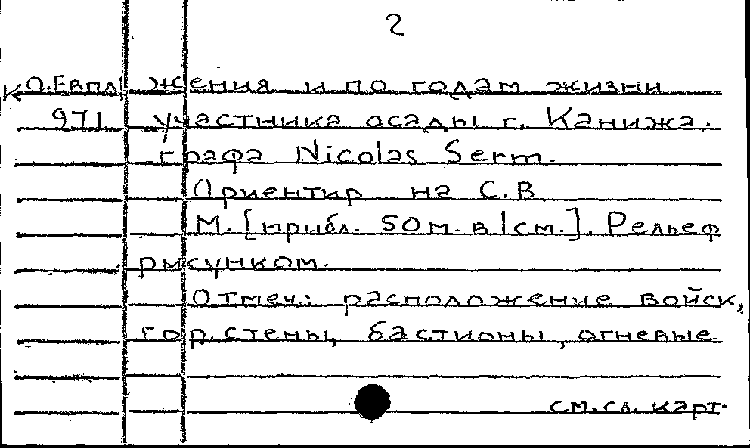 2
К О.Евпа жения и по годам жизни
971 участника осады г. Канижа.
графа Nicolas Serm.
Ориентир на С.В
М. [прибл. 50м. в 1см.]. Рельеф
рисунком.
Отмеч.: расположение войск,
гор.стены, бастионы, огневые
см.сл. карт.